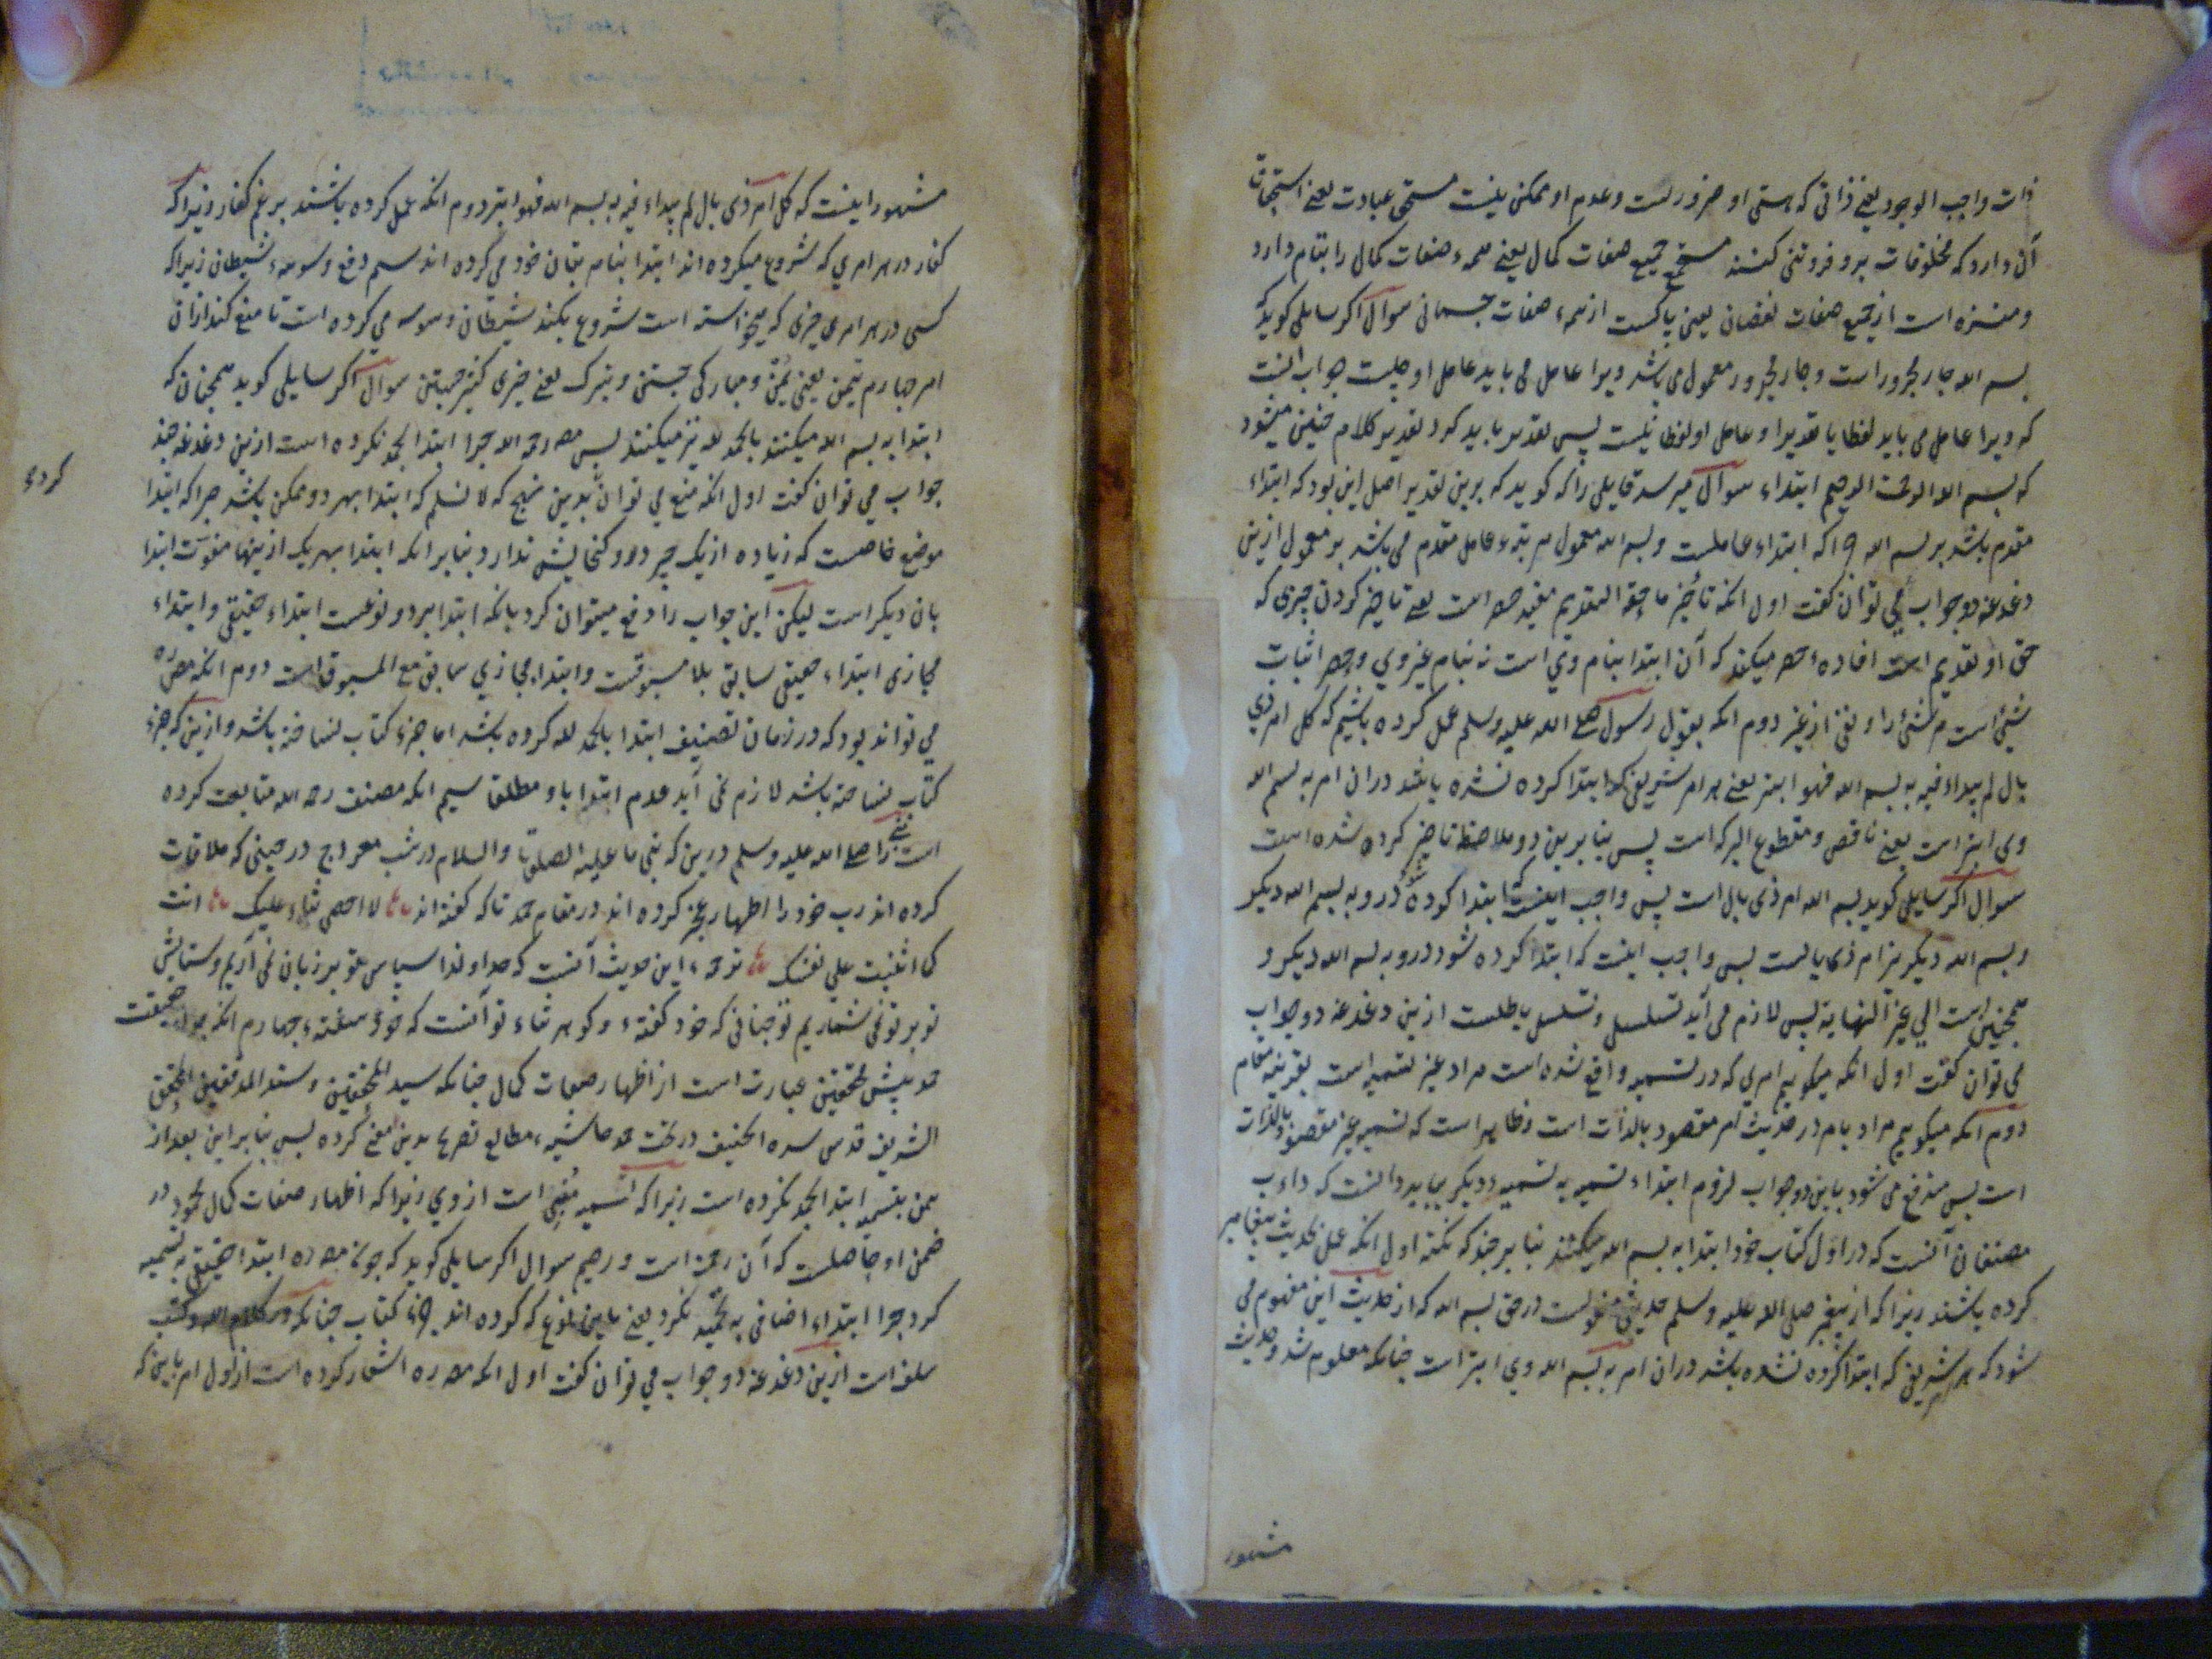 ذات واجب الوجود یعنے ذاتی که هستی او ضرورلست و عدم او ممکن نیست مستحق عبادت یعنے استحقاق
آن دارد که مخلوقات برو فروتنی کنند مستجمع جمیع صفات کمال یعنے همهء صفات کمال را بتمام دارد
و منزه است از جمیع صفات نقصان یعنی پاکست از همهء صفات جسمانی سوال اکر سایلی کوید که
بسم الله جار مجرور است و جار مجرور معمول می باشد ویرا عامل می باید عامل او چیست جواب آنست
که ویرا عامل می باید لفظا یا تقدیرا و عامل او لفظا نیست پس تقدیر باید کرد تقدیر کلام چنین میشود
که بسم الله الرحمن الرحیم ابتداء سوال میرسد قایلی را که کوید که برین تقدیر اصل این بود که ابتداء
مقدم باشد بر بسم الله چراکه ابتداء عاملست و بسم الله معمول مرتبهء عامل مقدم می باشد بر معمول ازین
دغدغه دو جواب می توان کفت اول انکه تأخیر ما حقه التقدیم مفید حصر است یعنے تاخیر کردن چیزی که
حق او تقدیم است افاده حصر میکند که آن ابتدا بنام وی است نه بنام غیر وی و حصر اثبات
شیئ است مر شیئ را و نفی از غیر دوم انکه بقول رسول صلے الله علیه وسلم عمل کرده باشیم که کل امر ذی
بال لم یبداء فیه به بسم الله فهو ابتر یعنے هر امر شریفی که ابتدا کرده نشده باشد در ان امر به بسم الله
وی ابتر است یعنے ناقص و مقطوع البرکه است پس بنابرین دو ملاحظه تاخیر کرده شده است
سوال اکر سایلی کوید بسم الله امر ذی بال است پس واجب اینست که ابتدا کرده شود درو به بسم الله دیکر
و بسم الله دیکر نیز امر ذی بالست پس واجب اینست که ابتدا کرده شود درو به بسم الله دیکر و
همچنین است الی غیر النهایه پس لازم می آید تسلسل و تسلسل باطلست ازین دغدغه دو جواب
می توان کفت اول انکه میکوییم امری که در تسمیه واقع شده است مراد غیر تسمیه است بقرینه مقام
دوم انکه میکوییم مراد بامر در حدیث امر مقصود بالذات است و ظاهر است که تسمیه غیر مقصود بالذات
است پس مندفع می شود باین دو جواب لزوم ابتداء تسمیه به تسمیهء دیکر بباید دانست که داءب
مصنفان آنست که در اول کتاب خود ابتدا به بسم الله میکنند بنابر چند نکته اول انکه عمل بحدیث پیغامبر
کرده باشند زیرا که از پیغمبر صلی الله علیه وسلم حدیثی منقولست در حق بسم الله که از حدیث این مفهوم می
شود که هر شریفی که ابتدا کرده نشده باشد در ان امر به بسم الله وی ابتر است چنانکه معلوم شد و حدیث
مشهور
مشهور اینست که کل امر ذی بال لم یبداء فیه به بسم الله فهو ابتر دوم انکه عمل کرده باشند برغم کفار زیراکه
کفار در هر امری که شروع میکرده اند ابتدا بنام بتان خود می کرده اند سیم دفع وسوسهء شیطان زیراکه
کسی در هر امری چیزی که میخواسته است شروع بکند شیطان وسوسه می کرده است تا منع کند ازان
امر چهارم تیمن یعنی یمن و مبارکی جستن و تبرک یعنے چیزی کثیر جستن سوال اکر سایلی کوید همچنان که
ابتدا به بسم الله میکنند بالحمد لله نیز میکنند پس مصه رحمه الله چرا ابتدا الحمد نکرده است ازین دغدغه چند
جواب می توان کفت اول انکه منع می توان بدین نهج که لا نسلم که ابتدا بهر دو ممکن باشد چراکه ابتدا
کردء
موضع خاصست که زیاده از یک چیز درو کنجایش ندارد بنابر انکه ابتدا بهر یک ازینها مفوت ابتدا
بان دیکر است لیکن این جواب را دفع میتوان کرد بانکه ابتدا بر دو نوعست ابتداء حقیقی و ابتداء
مجازی ابتداء حقیقی سابق بلا مسبوقست و ابتداء مجازی سابق مع المسبوق است دوم انکه مصره
می تواند بود که در زمان تصنیف ابتدا بالحمد لله کرده باشد اما جزء کتاب نساخته باشد و ازین که جزء
کتاب نساخته باشد لازم نمی آید عدم ابتدا باو مطلقا سیم انکه مصنف رحمه الله متابعت کرده
است نبی را صلے الله علیه وسلم درین که نبی ما علیه الصلوة والسلام در شب معراج در حینی که ملاقات
کرده اند رب خود را اظهار عجز کرده اند در مقام حمد تا که کفته اند لا احصی ثناء علیک انت
کما اثنیت علی نفسک ترجمهء این حدیث آنست که خداوندا سپاس تو بر زبان نمی آریم و ستایش
تو بر تو نمی شماریم تو چنانی که خود کفتهء و کوهر ثناء تو آنست که خود سفتهء چهارم انکه چون حقیقت
حمد پیش محققین عبارت است از اظهار صفات کمال چنانکه سید المحققین و سند المدققین المحقق
الشریف قدس سره الحنیف در بحث حمد حاشیهء مطالع تصریح بدین معنے کرده پس بنابر این بعد از
یمن بتسمیه ابتدا الحمد نکرده است زیراکه تسمیه مغنی است از وی زیراکه اظهار صفات کمال محمود در
ضمن او حاصلست که آن رحمن است و رحیم سوال اکر سایلی کوید که چون مصه ره ابتدا حقیقی به تسمیه
کرد چرا ابتداء اضافی به تحمید نکرد یعنے باین نوع که کرده اند کتاب چنانکه در کلام الله و کتب
سلف است ازین دغدغه دو جواب می توان کفت اول انکه مصه ره اشعار کرده است از اول امر باین که